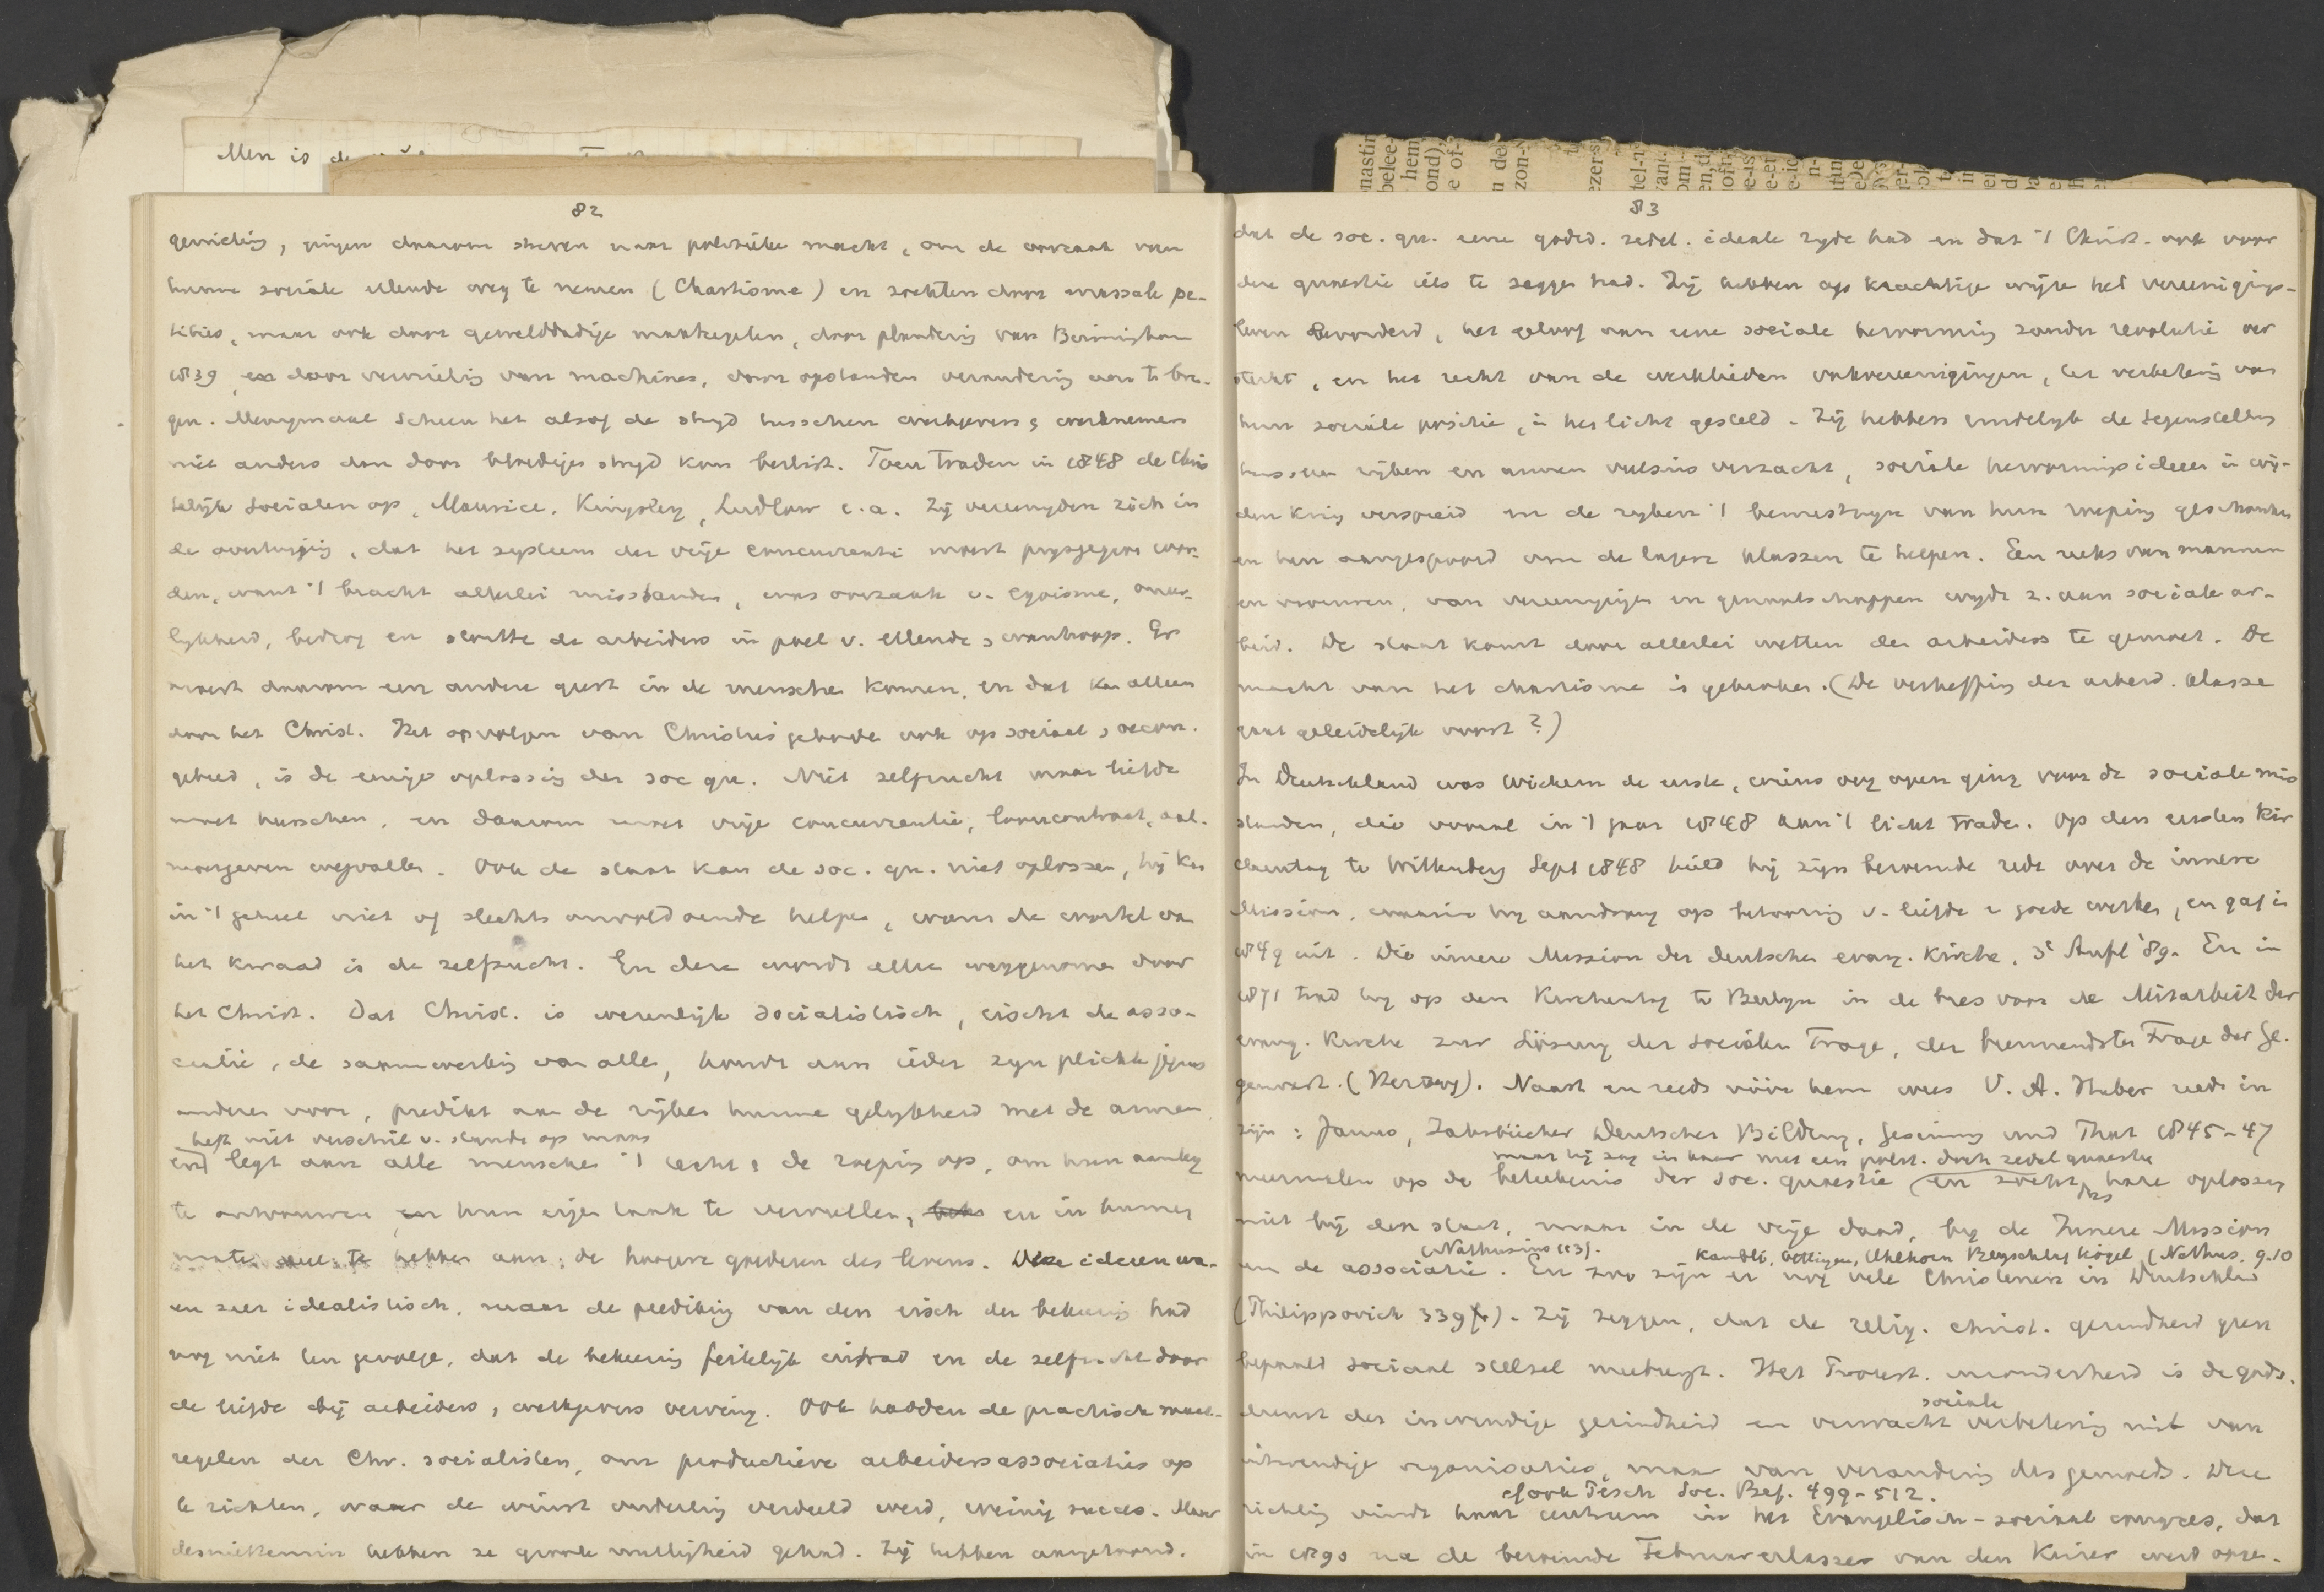 Men is
82
gerichtig, gingen daarom streven naar politieke macht, om de oorzaak van
hunne sociale ellende weg te nemen (Chartisme) en zochten door massale pe-
tities, maar ook door gewelddadige maatregelen, door plundering van Birmingham
1839, en door vernieling van machines, door opstanden verandering aan te bren-
gen. Menigmaal scheen het alsof de strijd tusschen werkgevers & werknemers
niet anders dan door bloedige strijd kon beslist. Toen traden in 1848 de Chris
telijk Socialen op, Maurice, Kingsley, Ludlow e.a. Zij vereenigden zich in
de overtuiging, dat het systeem der vrije concurrentie moest prijsgegeven wor-
den, want 't bracht allerlei misstanden, was oorzaak v. egoisme, oneer-
lijkheid, bedrog en stortte de arbeiders in poel v. ellende & wanhoop. Er
moest daarom een andere geest in de menschen komen, en dat kan alleen
door het Christ. Het opvolgen van Christus geboden ook op sociaal & oecon.
gebied, is de eenige oplossing der soc qu. Niet zelfzucht maar liefde
moet heerschen, en daarom moet vrije concurrentie, looncontract, aal-
moezegeven wegvallen. Ook de staat kan de soc. qu. niet oplossen, hij kan
in 't geheel niet of slechts onvoldoende helpen, want de wortel van
het kwaad is de zelfzucht. En deze wordt alleen weggenomen door
het Christ. Dat Christ. is wezenlijk socialistisch, eischt de asso-
ciatie, de samenwerking van allen, houdt aan ieder zijn plicht jegens
anderen voor, predikt aan de rijken hunne gelijkheid met de armen
heft niet verschil v. stand op maar
en legt aan alle menschen 't recht & de roeping op, om hun aanleg
te ontvouwen en hun eigen taak te vervullen, en in hunne
mate deel te hebben aan de hoogere goederen des levens. Deze ideeen wa-
en zeer idealistisch, maar de prediking van den eisch der bekeering had
nog niet ten gevolge, dat de bekeering feitelijk intrad en de zelfzucht door
de liefde bij arbeiders & werkgevers verving. Ook hadden de practische maat-
regelen der Chr. socialisten, om productieve arbeidersassociaties op
te richten, waar de winst onderling verdeeld werd, weinig succes. Maar
desniettemin hebben ze groote nuttigheid gehad. Zij hebben aangetoond,
83
dat de soc. qu. eene godsd. zedel. ideale zyde had en dat 't Christ. ook voor
deze quaestie iets te zeggen had. Zij hebben op krachtige wijze het vereenigings-
leven bevorderd, het geloof aan eene sociale hervorming zonder revolutie ver
sterkt, en het recht van de werklieden vakvereenigingen, ter verbetering van
hun sociale positie, in het licht gesteld. Zij hebben eindelijk de tegenstelling
tusschen rijken en armen veelszins verzacht, sociale hervormingsideeen in wij-
den kring verspreid en de rijken 't bewustzijn van hun roeping geschonken
en hen aangespoord om de lagere klassen te helpen. Een reeks van mannen
en vrouwen, van vereenigingen en genootschappen wijdt z. aan sociale ar-
beid. De staat komt door allerlei wetten den arbeiders te gemoet. De
macht van het chartisme is gebroken. (De verheffing der arbeid. klasse
gaat geleidelijk voort?)
In Deutschland was Wichern de eerste, wiens oog open ging voor de sociale mis
standen, die vooral in 't jaar 1848 aan 't licht traden. Op den eersten Kir
chentag te Wittenberg Sept 1848 hield hij zijn beroemde rede over de innere
Mission, waarin hij aandrong op betooning v. liefde & goede werken, en gaf in
1849 uit. Die innere Mission der deutschen evang. Kirche, 3e Aufl '89. En in
1871 trad hij op den Kirchentag te Berlijn in de bres voor de Mitarbeit der
evang. Kirche zur Lösung der socialen Frage, der brennendsten Frage der Ge-
genwart. (Herzog). Naast en reeds vóór hem wees V. A. Huber reeds in
zijn: Janus, Jahrbücher Deutscher Bildung, Gesinnung und That 1845-47
maar hij zag in haar niet een polit. doch zedel quaestie
meermalen op de beteekenis der soc. quaestie en zocht dus hare oplossing
niet bij den staat, maar in de vrije daad, bij de Innere Mission
(Nathusius 113). Kambli, Oettingen, Uhlhorn Beyschlag Kögel (Nathus. 9.10
en de associatie. En zoo zijn er nog vele Christenen in Deutschland
(Philippovich 339). Zij zeggen, dat de relig. christ. gezindheid geen
bepaald sociaal stelsel meebrengt. Het Protest. is de gods.
sociale
dienst der inwendige gezindheid en verwacht verbetering niet van
uitwendige organisaties, maar van verandering des gemoeds. Deze
cf ook Pesch Soc. Bef. 499-512.
richting vindt haar centrum in het Evangelisch-sociaal congres, dat
in 1890 na de beroemde Februarerlassen van den Keizer werd opge-